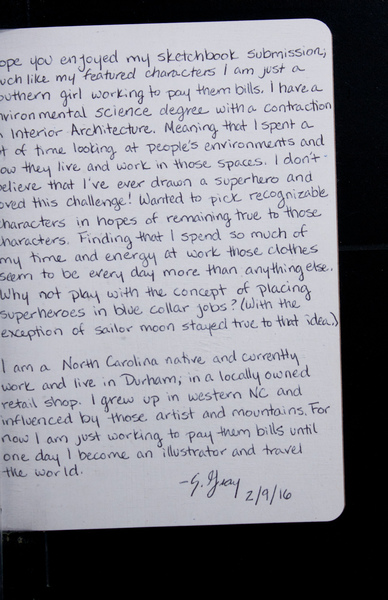 ope you enjoyed my sketchbook submission;
uch like my featured characters I am just a
outhern girl working to pay them bills. I have a
nvironmental science degree with a contraction
n Interior Architecture. Meaning that I spent a
t of time looking at people's environments and
ow they live and work in those spaces. I don't
elieve that I've ever drawn a superhero and
oved this challenge! Wanted to pick recognizable
characters in hopes of remaining true to those
haracters. Finding that I spend so much of
my time and energy at work those clothes
seem to be every day more than anything else.
Why not play with the concept of placing
superheroes in blue collar jobs? (With the
exception of sailor moon stayed true to that idea.)
I am a North Carolina native and currently
work and live in Durham; in a locally owned
retail shop. I grew up in western NC and
influenced by those artist and mountains. For
now I am just working to pay them bills until
one day I become an illustrator and travel
the world.
-S. Gray
2/9/16